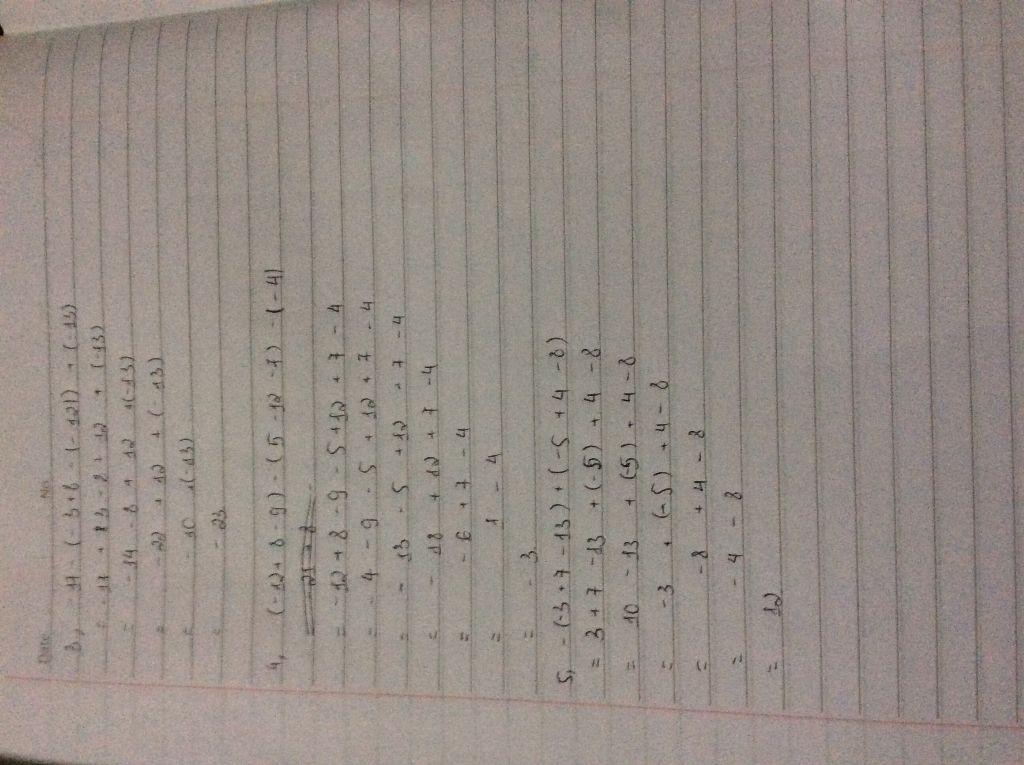 Date No.
3, - 17 - (- 3 + 8 - (- 12)) + (-13)
= - 17 + 3 - 8 + 12 + (-13)
= - 14 - 8 + 12 + (-13)
= - 22 + 12 + (- 13)
= - 10 + (-13)
= - 23
4, (- 12 + 8 - 9) - (5 - 12 - 7) - (- 4)
= - 12 + 8 - 9 - 5 + 12 + 7 - 4
= - 4 - 9 - 5 + 12 + 7 - 4
= - 13 - 5 + 12 + 7 - 4
= - 18 + 12 + 7 - 4
= - 6 + 7 - 4
= 1 - 4
= - 3
5, - (-3 + 7 - 13) + (- 5 + 4 - 8)
= 3 + 7 - 13 + (- 5) + 4 - 8
= 10 - 13 + (-5) + 4 - 8
= -3 + (-5) + 4 - 8
= -8 + 4 - 8
= - 4 - 8
= 12